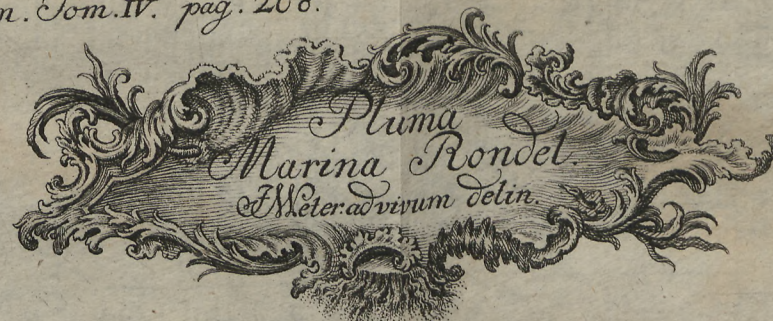 n. Tom. IV. pag. 208.
Pluma
Marina Rondel.
J Weter ad vivum delin.